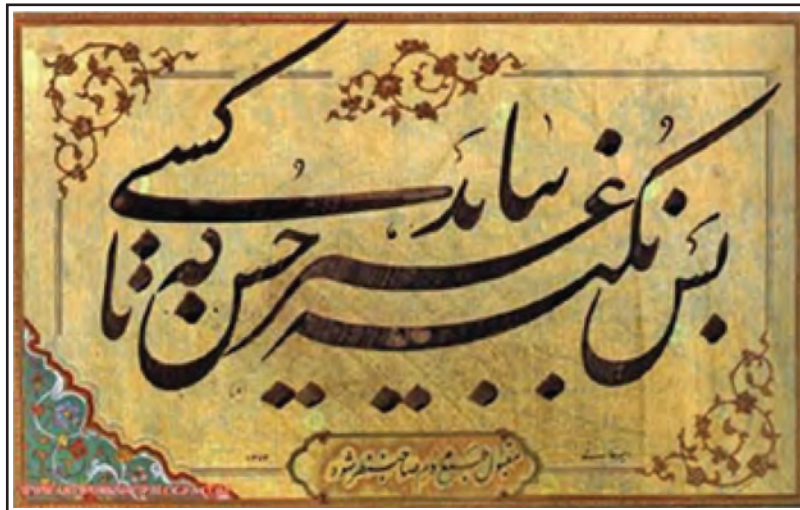 بس نکته غیر حسن بباید که تا کسی
مقبول طبع مردم صاحب نظر شود